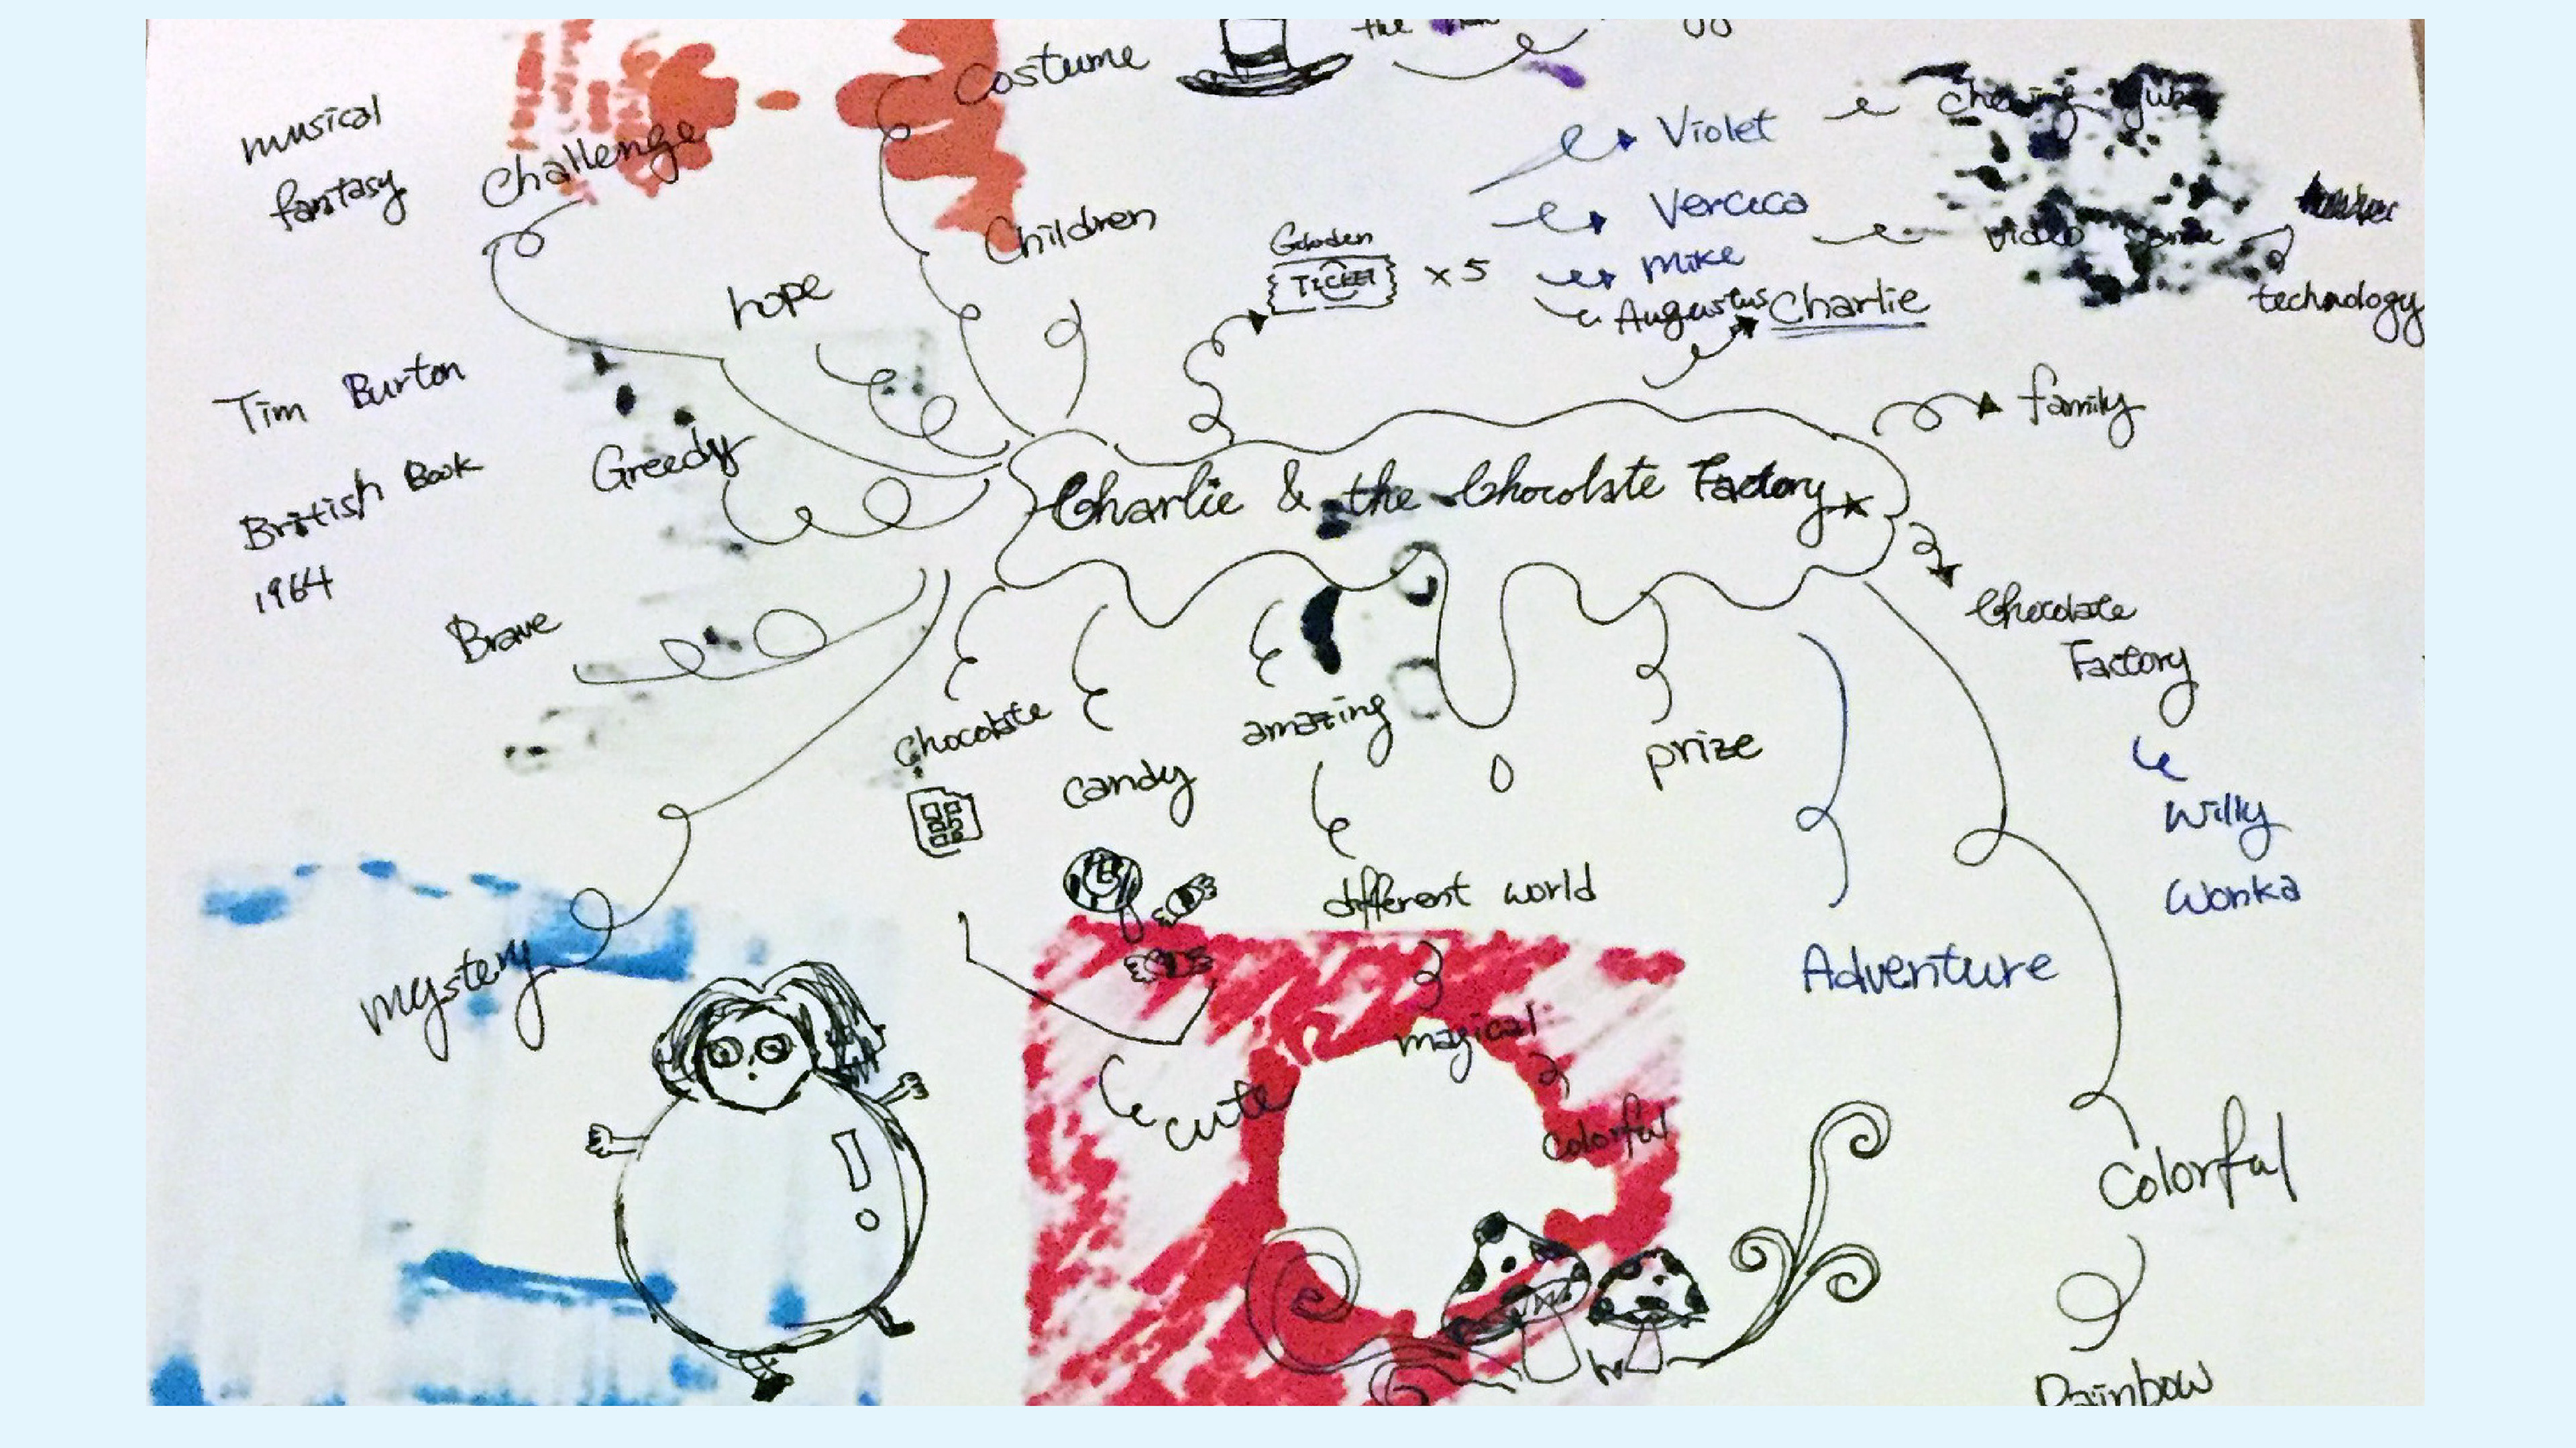 Costume
the
musical
fantasy
Challenge
Children
hope
Violet
chewing gum
Veruca
video game
technology
Mike
Augustus
Charlie
Goloden
TICKET
x 5
family
Tim Burton
British Book
1964
Greedy
Charlie & the Chocolate Factory
Brave
Chocolate
Factory
Willy
Wonka
chocolate
candy
amazing
prize
different world
Adventure
mystery
magical
cute
colorful
Colorful
Rainbow